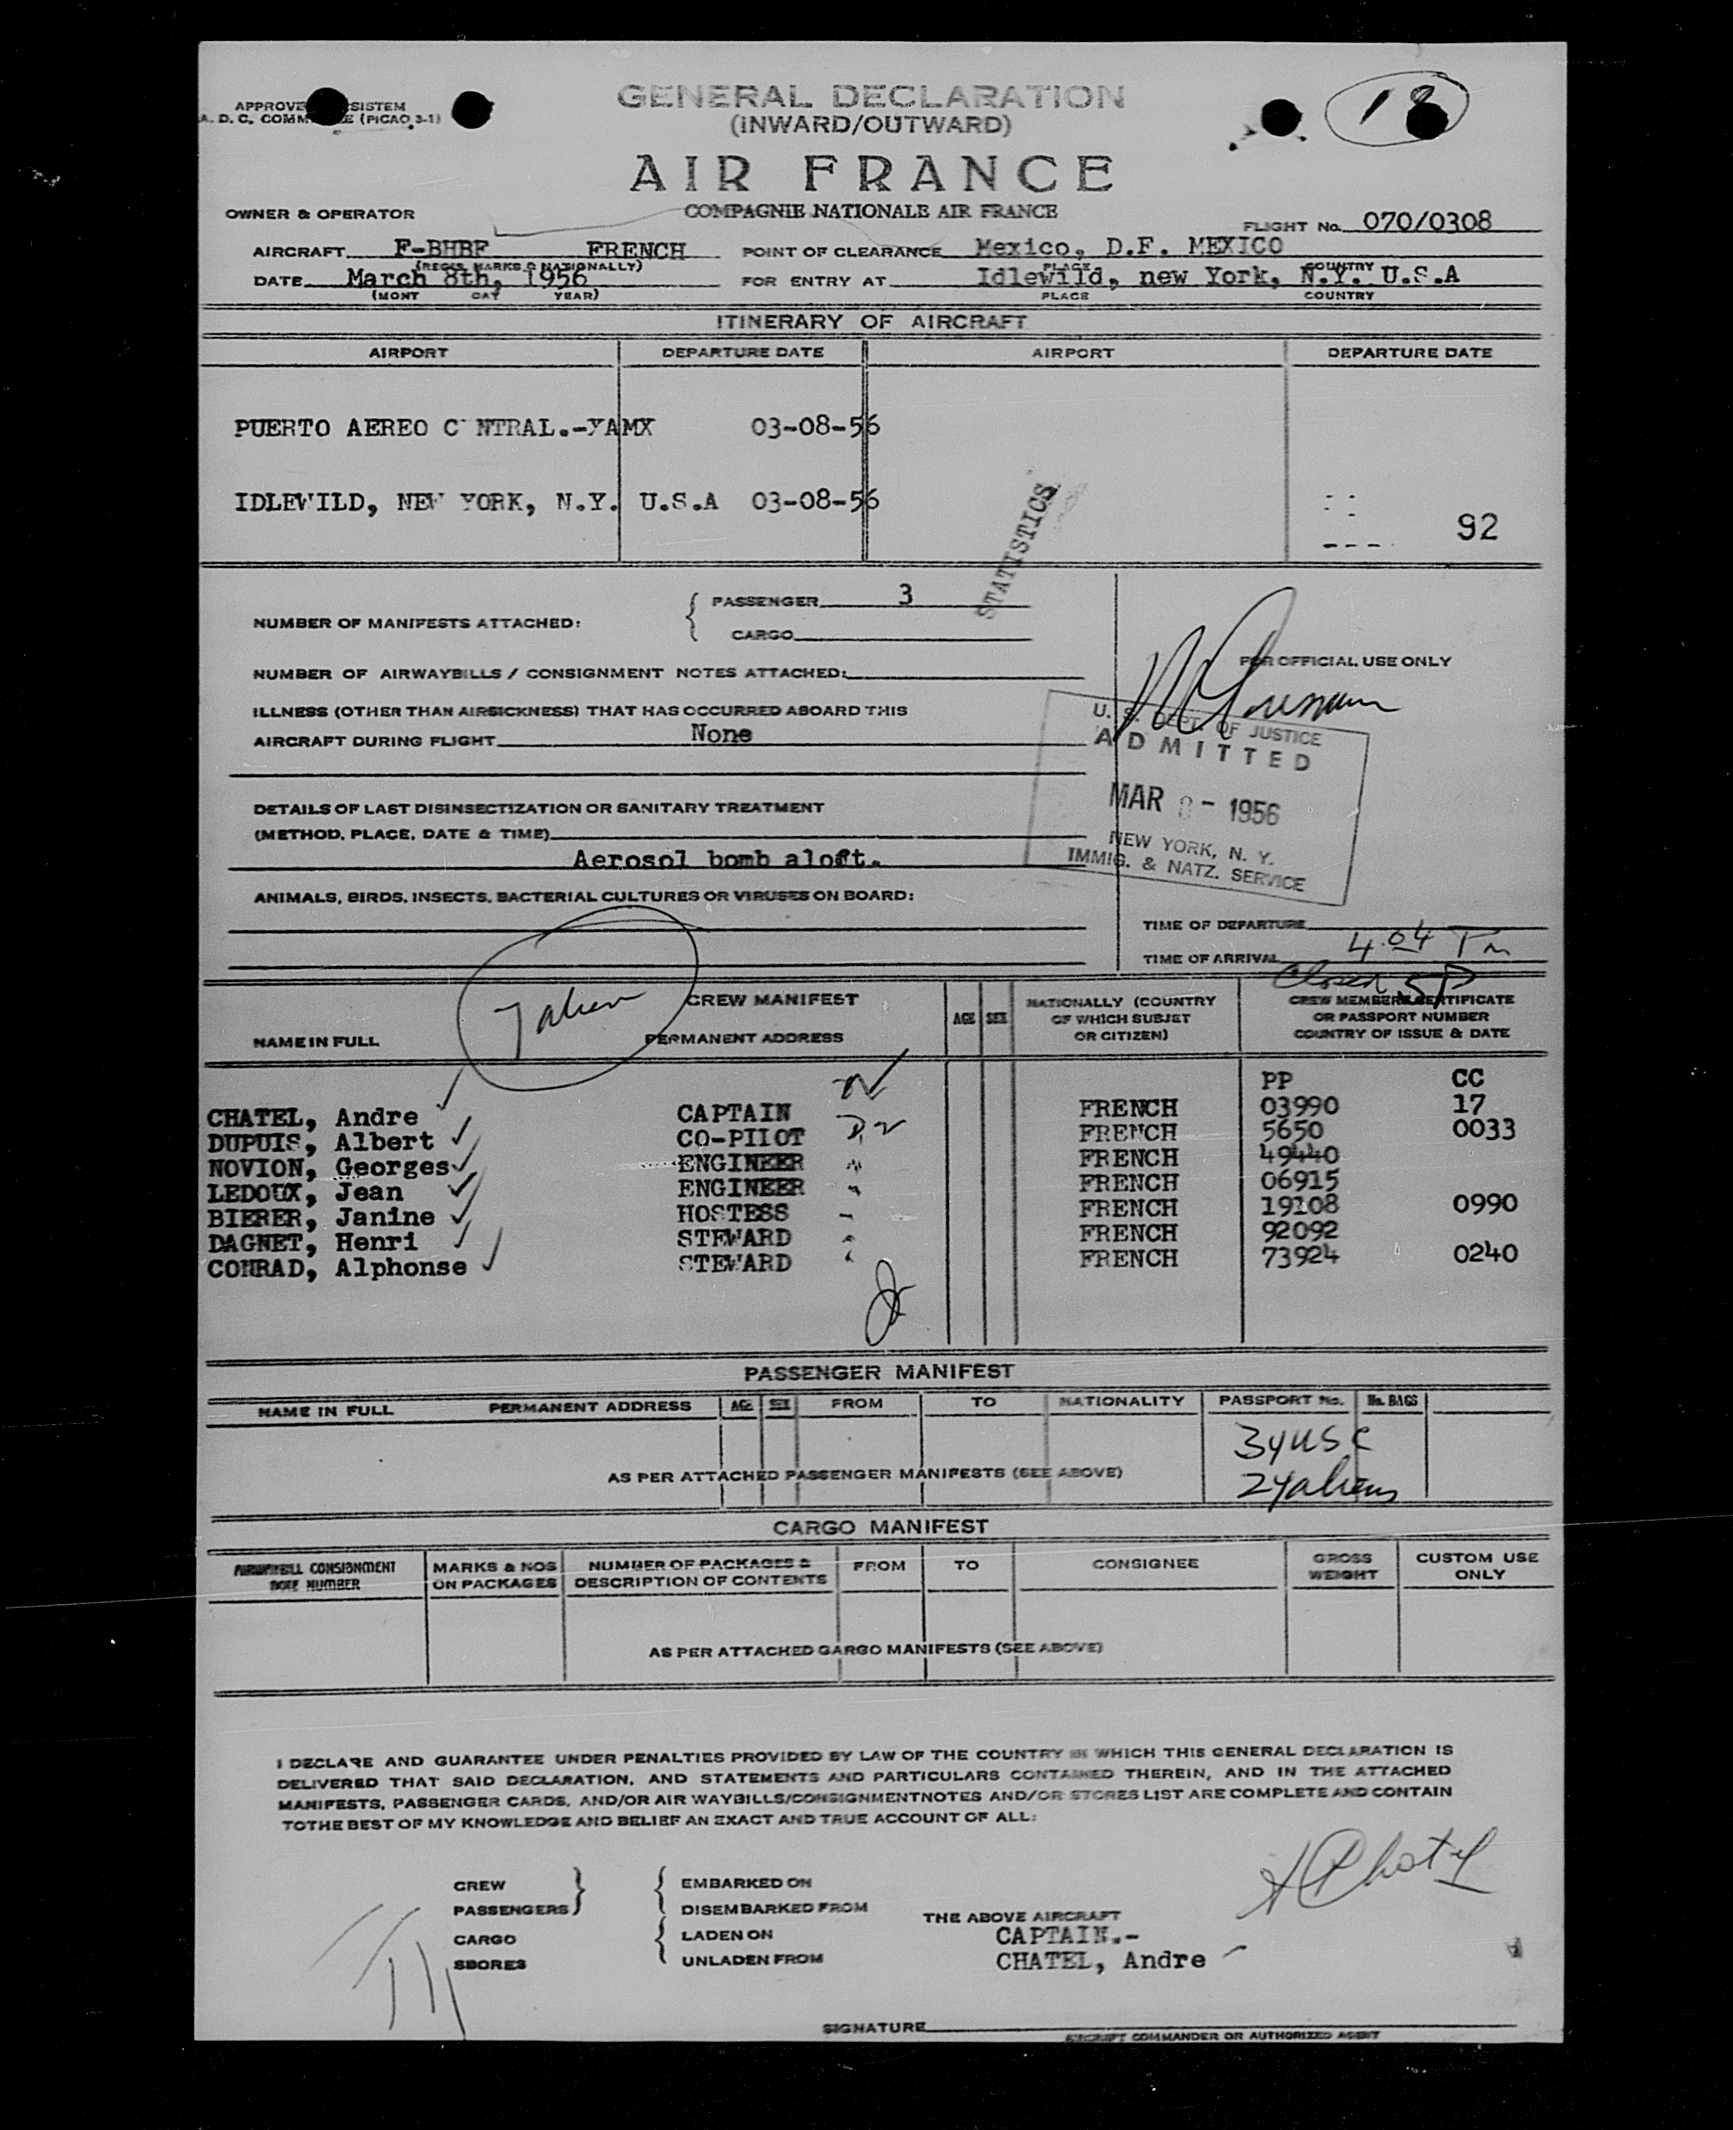 GENERAL DECLARATION
(INWARD/OUTWARD)
18
AIR FRANCE
COMPAGNIE NATIONALE AIR FRANCE
OWNER & OPERATOR
FLIGHT No. 070/0308
AIRCRAFT F-BHBF FRENCH POINT OF CLEARANCE Mexico, D.F. MEXICO
(REGIS. MARKS & NATIONALLY) PLACE COUNTRY
DATE March 8th, 1956 FOR ENTRY AT Idlewild, new York, N.Y. U.S.A
(MONT DAY YEAR) PLACE COUNTRY
ITINERARY OF AIRCRAFT
AIRPORT DEPARTURE DATE AIRPORT DEPARTURE DATE
PUERTO AEREO C NTRAL.-YAMX 03-08-56
IDLEWILD, NEW YORK, N.Y. U.S.A 03-08-56
92
STATISTICS
NUMBER OF MANIFESTS ATTACHED: PASSENGER 3
CARGO
FOR OFFICIAL USE ONLY
NUMBER OF AIRWAYBILLS / CONSIGNMENT NOTES ATTACHED:
ILLNESS (OTHER THAN AIRSICKNESS) THAT HAS OCCURRED ABOARD THIS
AIRCRAFT DURING FLIGHT None
U. S. DEPT. OF JUSTICE
ADMITTED
MAR - 1956
NEW YORK, N. Y.
IMMIG. & NATZ. SERVICE
DETAILS OF LAST DISINSECTIZATION OR SANITARY TREATMENT
(METHOD, PLACE, DATE & TIME)
Aerosol bomb aloft.
ANIMALS, BIRDS, INSECTS, BACTERIAL CULTURES OR VIRUSES ON BOARD:
TIME OF DEPARTURE
TIME OF ARRIVAL 4.04 Pm
Closed 5P
7 alien
CREW MANIFEST
NAME IN FULL PERMANENT ADDRESS AGE SEX NATIONALLY (COUNTRY OF WHICH SUBJET OR CITIZEN) CREW MEMBERS CERTIFICATE OR PASSPORT NUMBER COUNTRY OF ISSUE & DATE
PP CC
CHATEL, Andre CAPTAIN FRENCH 03990 17
DUPUIS, Albert CO-PILOT FRENCH 5650 0033
NOVION, Georges ENGINEER FRENCH 49440
LEDOUX, Jean ENGINEER FRENCH 06915
BIERER, Janine HOSTESS FRENCH 19108 0990
DAGNET, Henri STEWARD FRENCH 92092
CONRAD, Alphonse STEWARD FRENCH 73924 0240
PASSENGER MANIFEST
NAME IN FULL PERMANENT ADDRESS AGE SEX FROM TO NATIONALITY PASSPORT No. No. BAGS
34 USC
AS PER ATTACHED PASSENGER MANIFESTS (SEE ABOVE)
24 aliens
CARGO MANIFEST
AIRWAYBILL CONSIGNMENT NOTE NUMBER MARKS & NOS ON PACKAGES NUMBER OF PACKAGES & DESCRIPTION OF CONTENTS FROM TO CONSIGNEE GROSS WEIGHT CUSTOM USE ONLY
AS PER ATTACHED CARGO MANIFESTS (SEE ABOVE)
I DECLARE AND GUARANTEE UNDER PENALTIES PROVIDED BY LAW OF THE COUNTRY IN WHICH THIS GENERAL DECLARATION IS
DELIVERED THAT SAID DECLARATION, AND STATEMENTS AND PARTICULARS CONTAINED THEREIN, AND IN THE ATTACHED
MANIFESTS, PASSENGER CARDS, AND/OR AIR WAYBILLS/CONSIGNMENTNOTES AND/OR STORES LIST ARE COMPLETE AND CONTAIN
TOTHE BEST OF MY KNOWLEDGE AND BELIEF AN EXACT AND TRUE ACCOUNT OF ALL:
A Chatel
CREW EMBARKED ON
PASSENGERS DISEMBARKED FROM
THE ABOVE AIRCRAFT
CARGO LADEN ON CAPTAIN.-
SBORES UNLADEN FROM CHATEL, Andre
SIGNATURE
AIRCRAFT COMMANDER OR AUTHORIZED AGENT